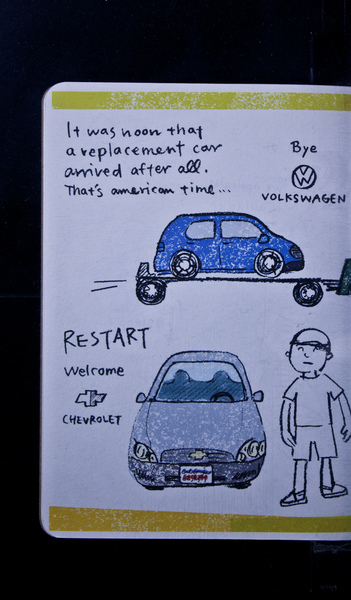 It was noon that
a replacement car
arrived after all.
That's american time...
Bye
VOLKSWAGEN
RESTART
Welcome
CHEVROLET